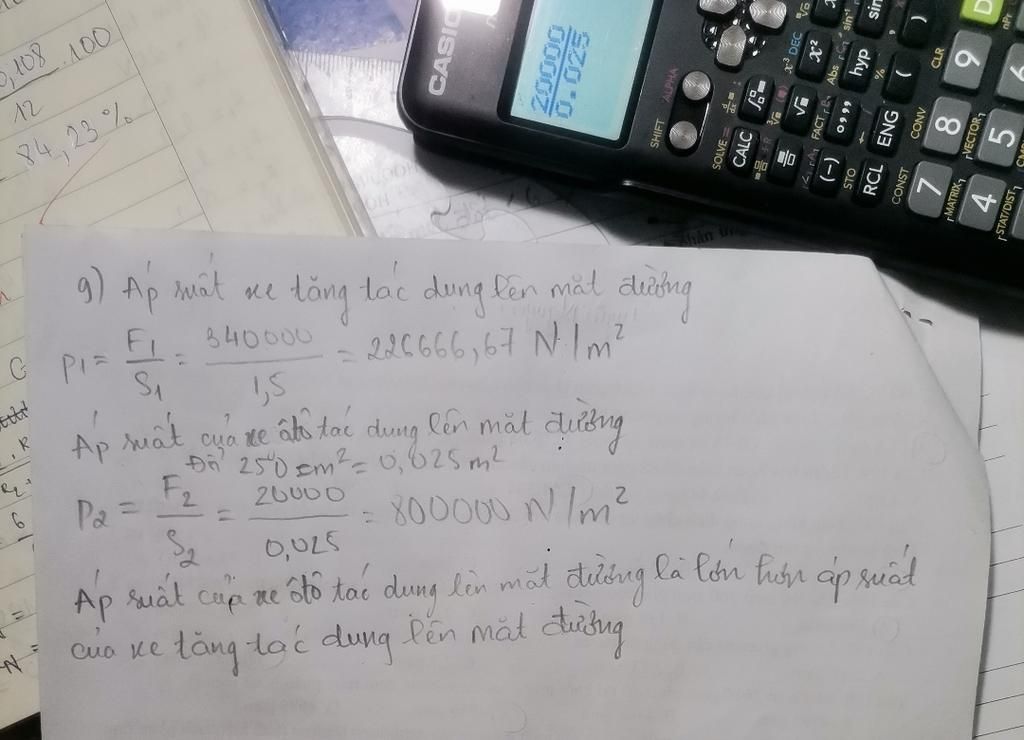 0,108 .100
12
84,23%
CASIO
20000
0.025
SHIFT
ALPHA
SOLVE =
CALC
x³ DEC
x²
hyp
Abs
sin
sin⁻¹
FACT
°'"
ENG
(
)
(-)
STO
RCL
CLR
CONV
CONST
7
8
9
MATRIX
VECTOR
4
5
6
STAT/DIST
9) Áp suất xe tăng tác dụng lên mặt đường
P1 = F1/S1 = 340000/1,5 = 226666,67 N/m²
Áp suất của xe ôtô tác dụng lên mặt đường
Đổi 250 cm² = 0,025 m²
P2 = F2/S2 = 20000/0,025 = 800000 N/m²
Áp suất của xe ôtô tác dụng lên mặt đường là lớn hơn áp suất
của xe tăng tác dụng lên mặt đường